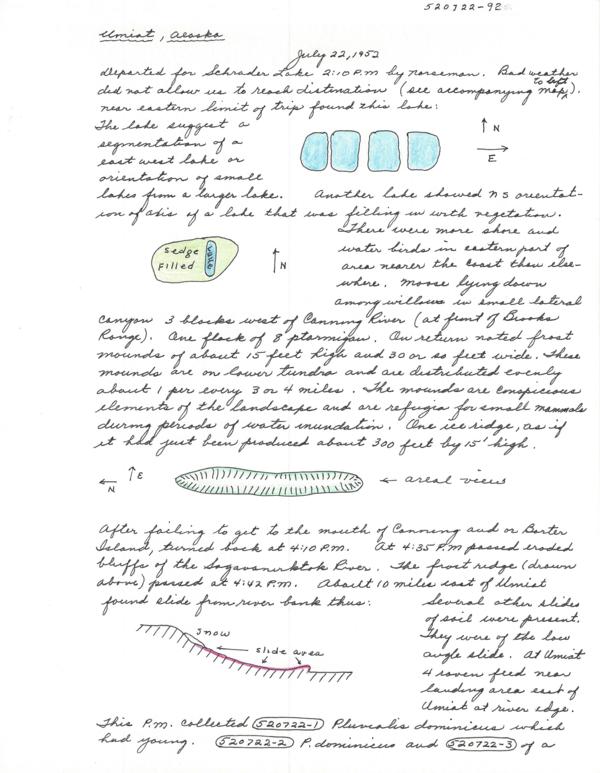 520722-92
Umiat, Alaska
July 22, 1952
departed for Schrader Lake 2:10 P.M by norseman. Bad weather
did not allow us to reach distination (see accompanying map to left).
near eastern limit of trip found this lake:
The lake suggest a
segmentation of a
east west lake or
orientation of small
lakes from a larger lake.
N
E
Another lake showed NS orientat-
ion of axis of a lake that was filling in with vegetation.
Sedge
Filled
water
N
There were more shore and
water birds in eastern part of
area nearer the coast than else-
where. Moose lying down
among willows in small lateral
canyon 3 blocks west of Canning River (at front of Brooks
Range). One flock of 8 ptarmigan. On return noted frost
mounds of about 15 feet high and 30 or so feet wide. These
mounds are on lower tundra and are distributed evenly
about 1 per every 3 or 4 miles. The mounds are conspicious
elements of the landscape and are refugia for small mammals
during periods of water inundation. One ice ridge, as if
it had just been produced about 300 feet by 15' high.
N
E
areal view
After failing to get to the mouth of Canning and or Barter
Island, turned back at 4:10 P.M. At 4:35 P.M passed eroded
bluffs of the Sagavanirktok River. The frost ridge (drawn
above) passed at 4:42 P.M. About 10 miles east of Umiat
found slide from river bank thus:
snow
slide area
Several other slides
of soil were present.
They were of the low
angle slide. At Umiat
4 raven feed near
landing area east of
Umiat at river edge.
This P.M. collected 520722-1 Pluvialis dominicus which
had young. 520722-2 P. dominicus and 520722-3 of a